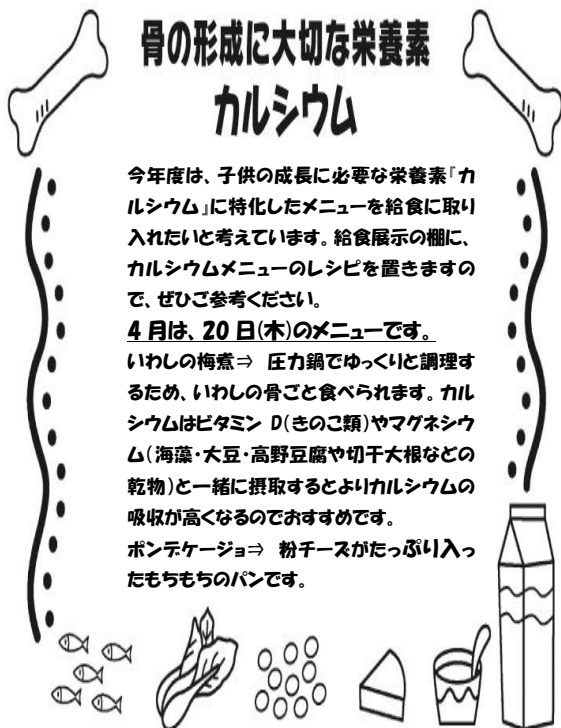 骨の形成に大切な栄養素
カルシウム
今年度は、子供の成長に必要な栄養素『カ
ルシウム』に特化したメニューを給食に取り
入れたいと考えています。給食展示の棚に、
カルシウムメニューのレシピを置きますの
で、ぜひご参考ください。
4 月は、20 日(木)のメニューです。
いわしの梅煮⇒ 圧力鍋でゆっくりと調理す
るため、いわしの骨ごと食べられます。カル
シウムはビタミン D(きのこ類)やマグネシウ
ム(海藻・大豆・高野豆腐や切干大根などの
乾物)と一緒に摂取するとよりカルシウムの
吸収が高くなるのでおすすめです。
ポンデケージョ⇒ 粉チーズがたっぷり入っ
たもちもちのパンです。